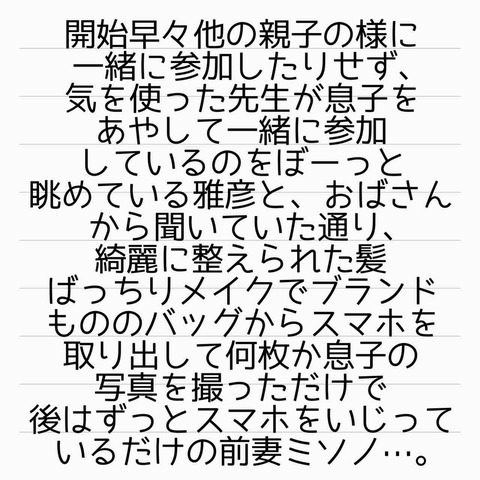 開始早々他の親子の様に
一緒に参加したりせず、
気を使った先生が息子を
あやして一緒に参加
しているのをぼーっと
眺めている雅彦と、おばさん
から聞いていた通り、
綺麗に整えられた髪
ばっちりメイクでブランド
もののバッグからスマホを
取り出して何枚か息子の
写真を撮っただけで
後はずっとスマホをいじって
いるだけの前妻ミソノ…。